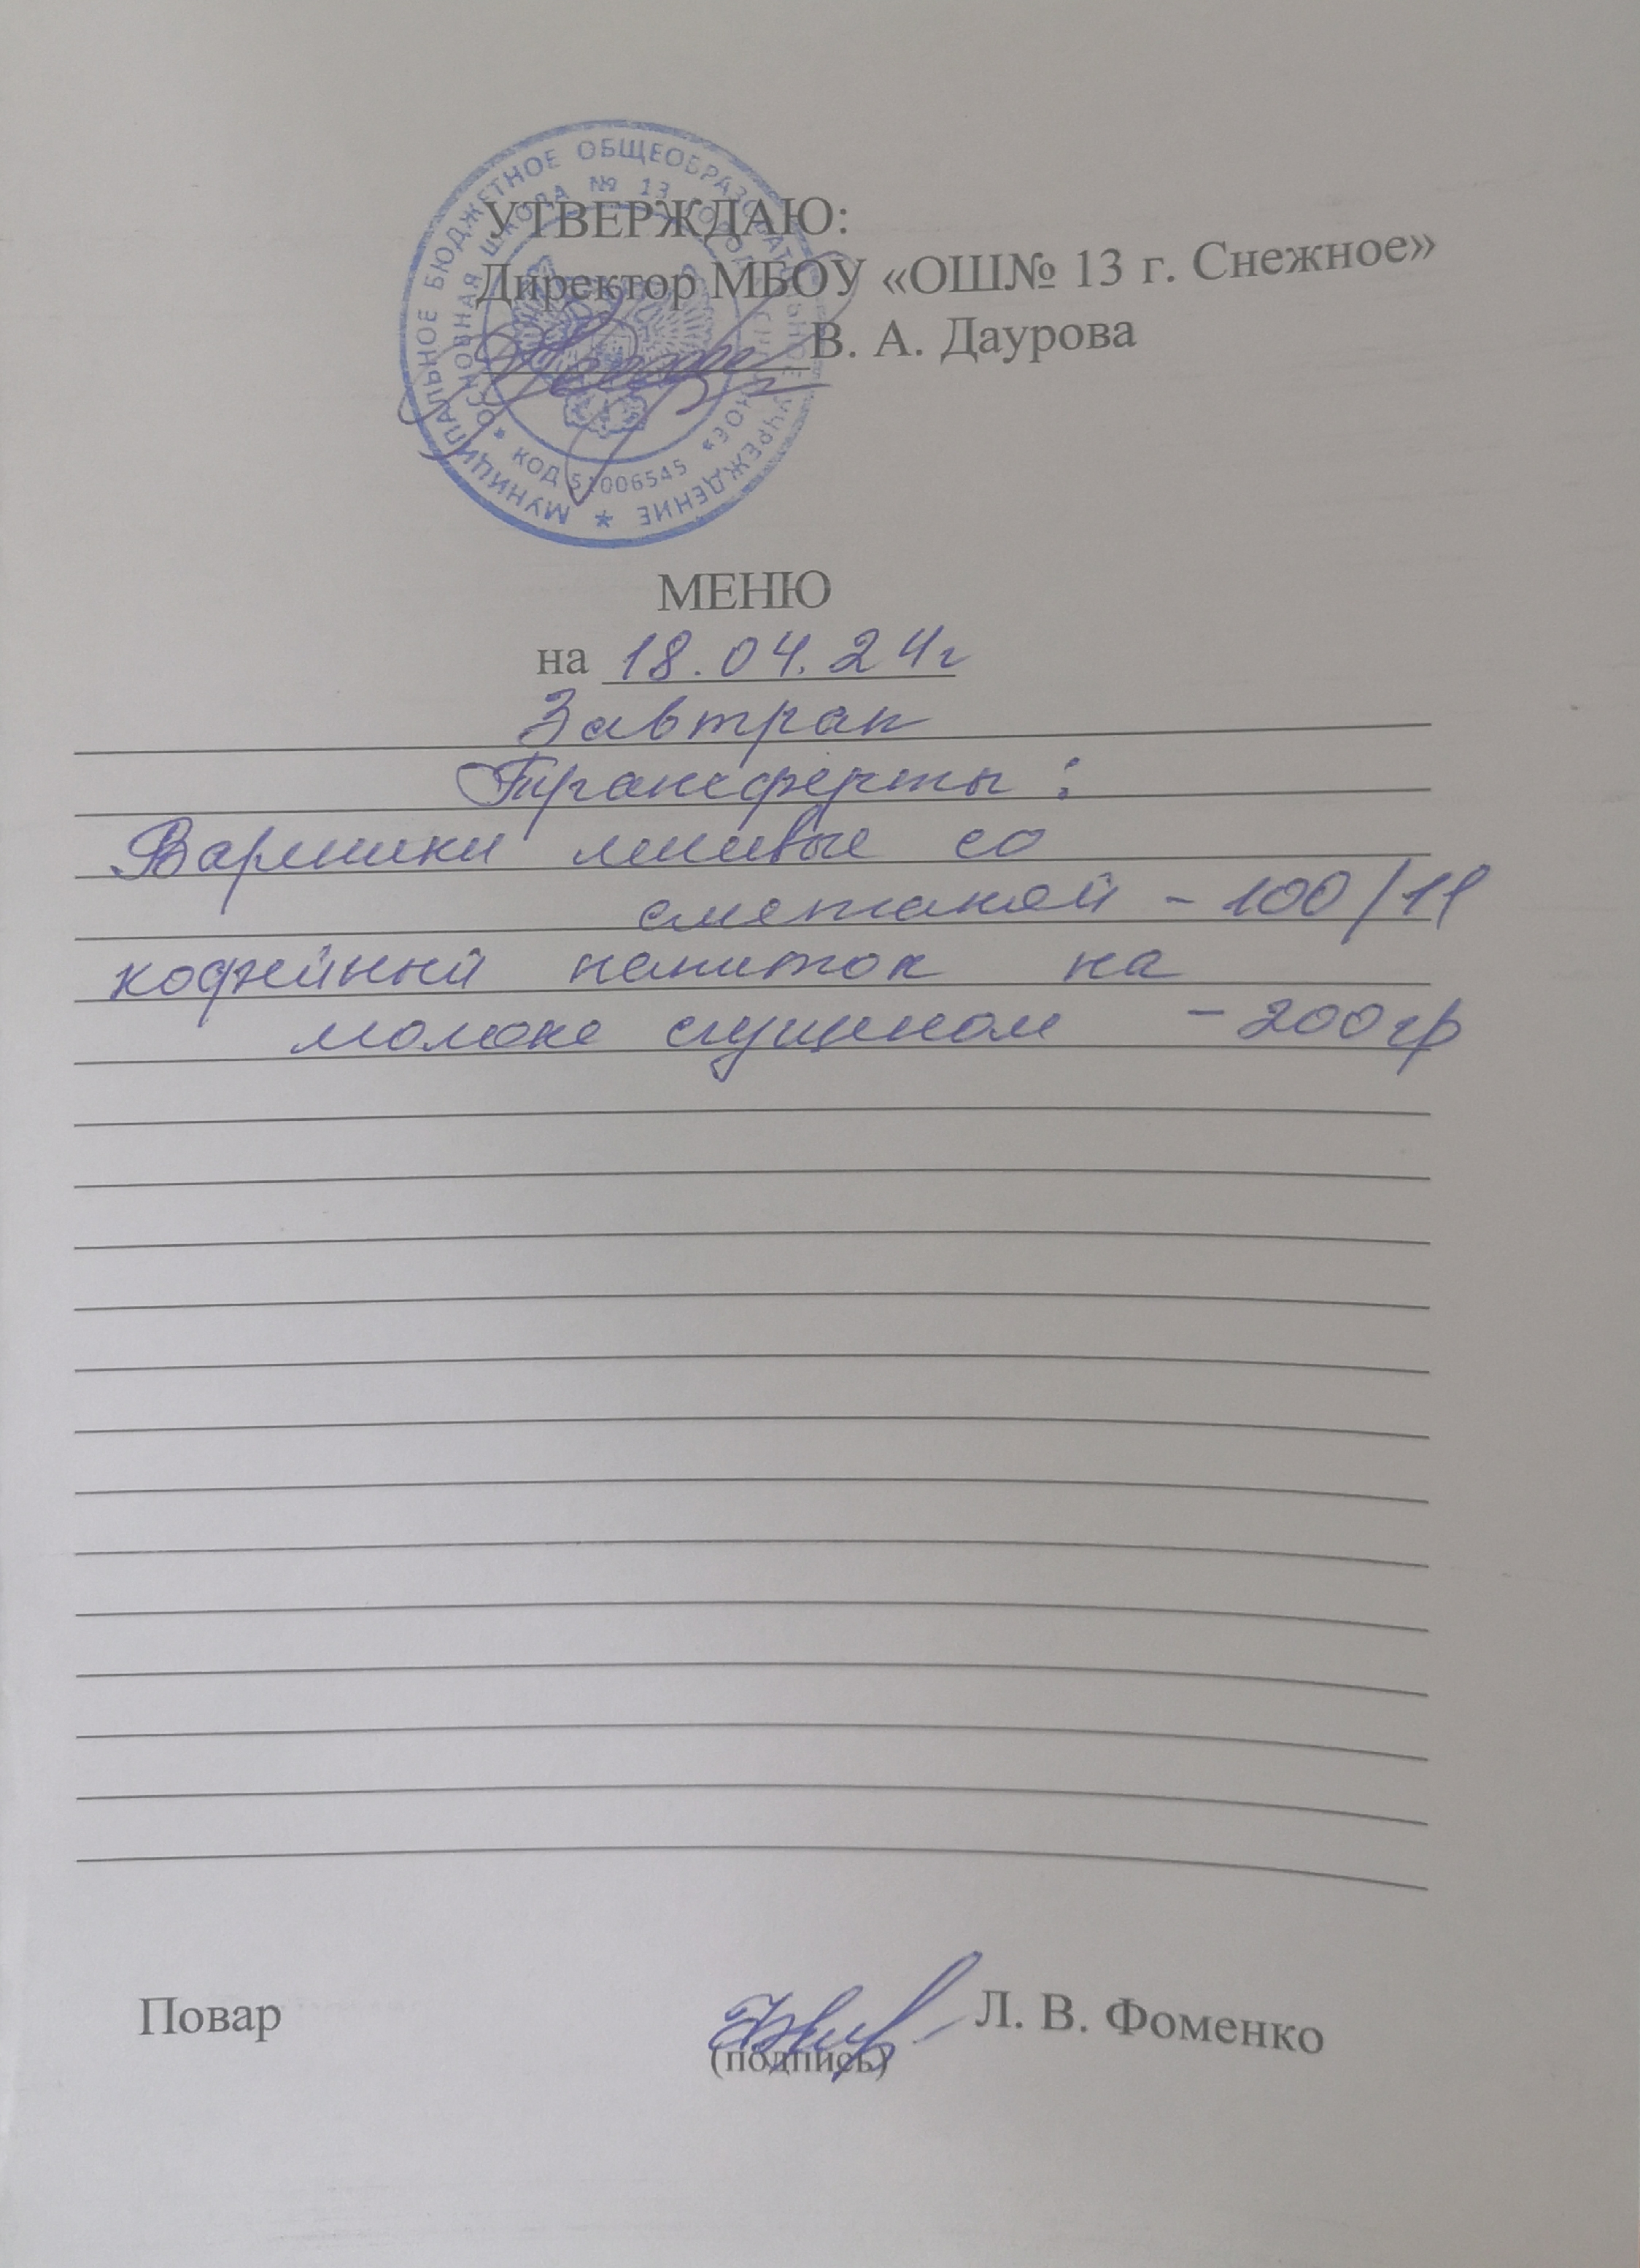 УТВЕРЖДАЮ:
Директор МБОУ «ОШ№ 13 г. Снежное»
В. А. Даурова
МУНИЦИПАЛЬНОЕ БЮДЖЕТНОЕ ОБЩЕОБРАЗОВАТЕЛЬНОЕ УЧРЕЖДЕНИЕ *
ОСНОВНАЯ ШКОЛА № 13
* КОД 51006545
МЕНЮ
на 18.04.24г
Завтрак
Трансферты:
Вареники ленивые со
сметаной - 100/11
кофейный напиток на
молоке сгущеном - 200гр
Повар
Л. В. Фоменко
(подпись)